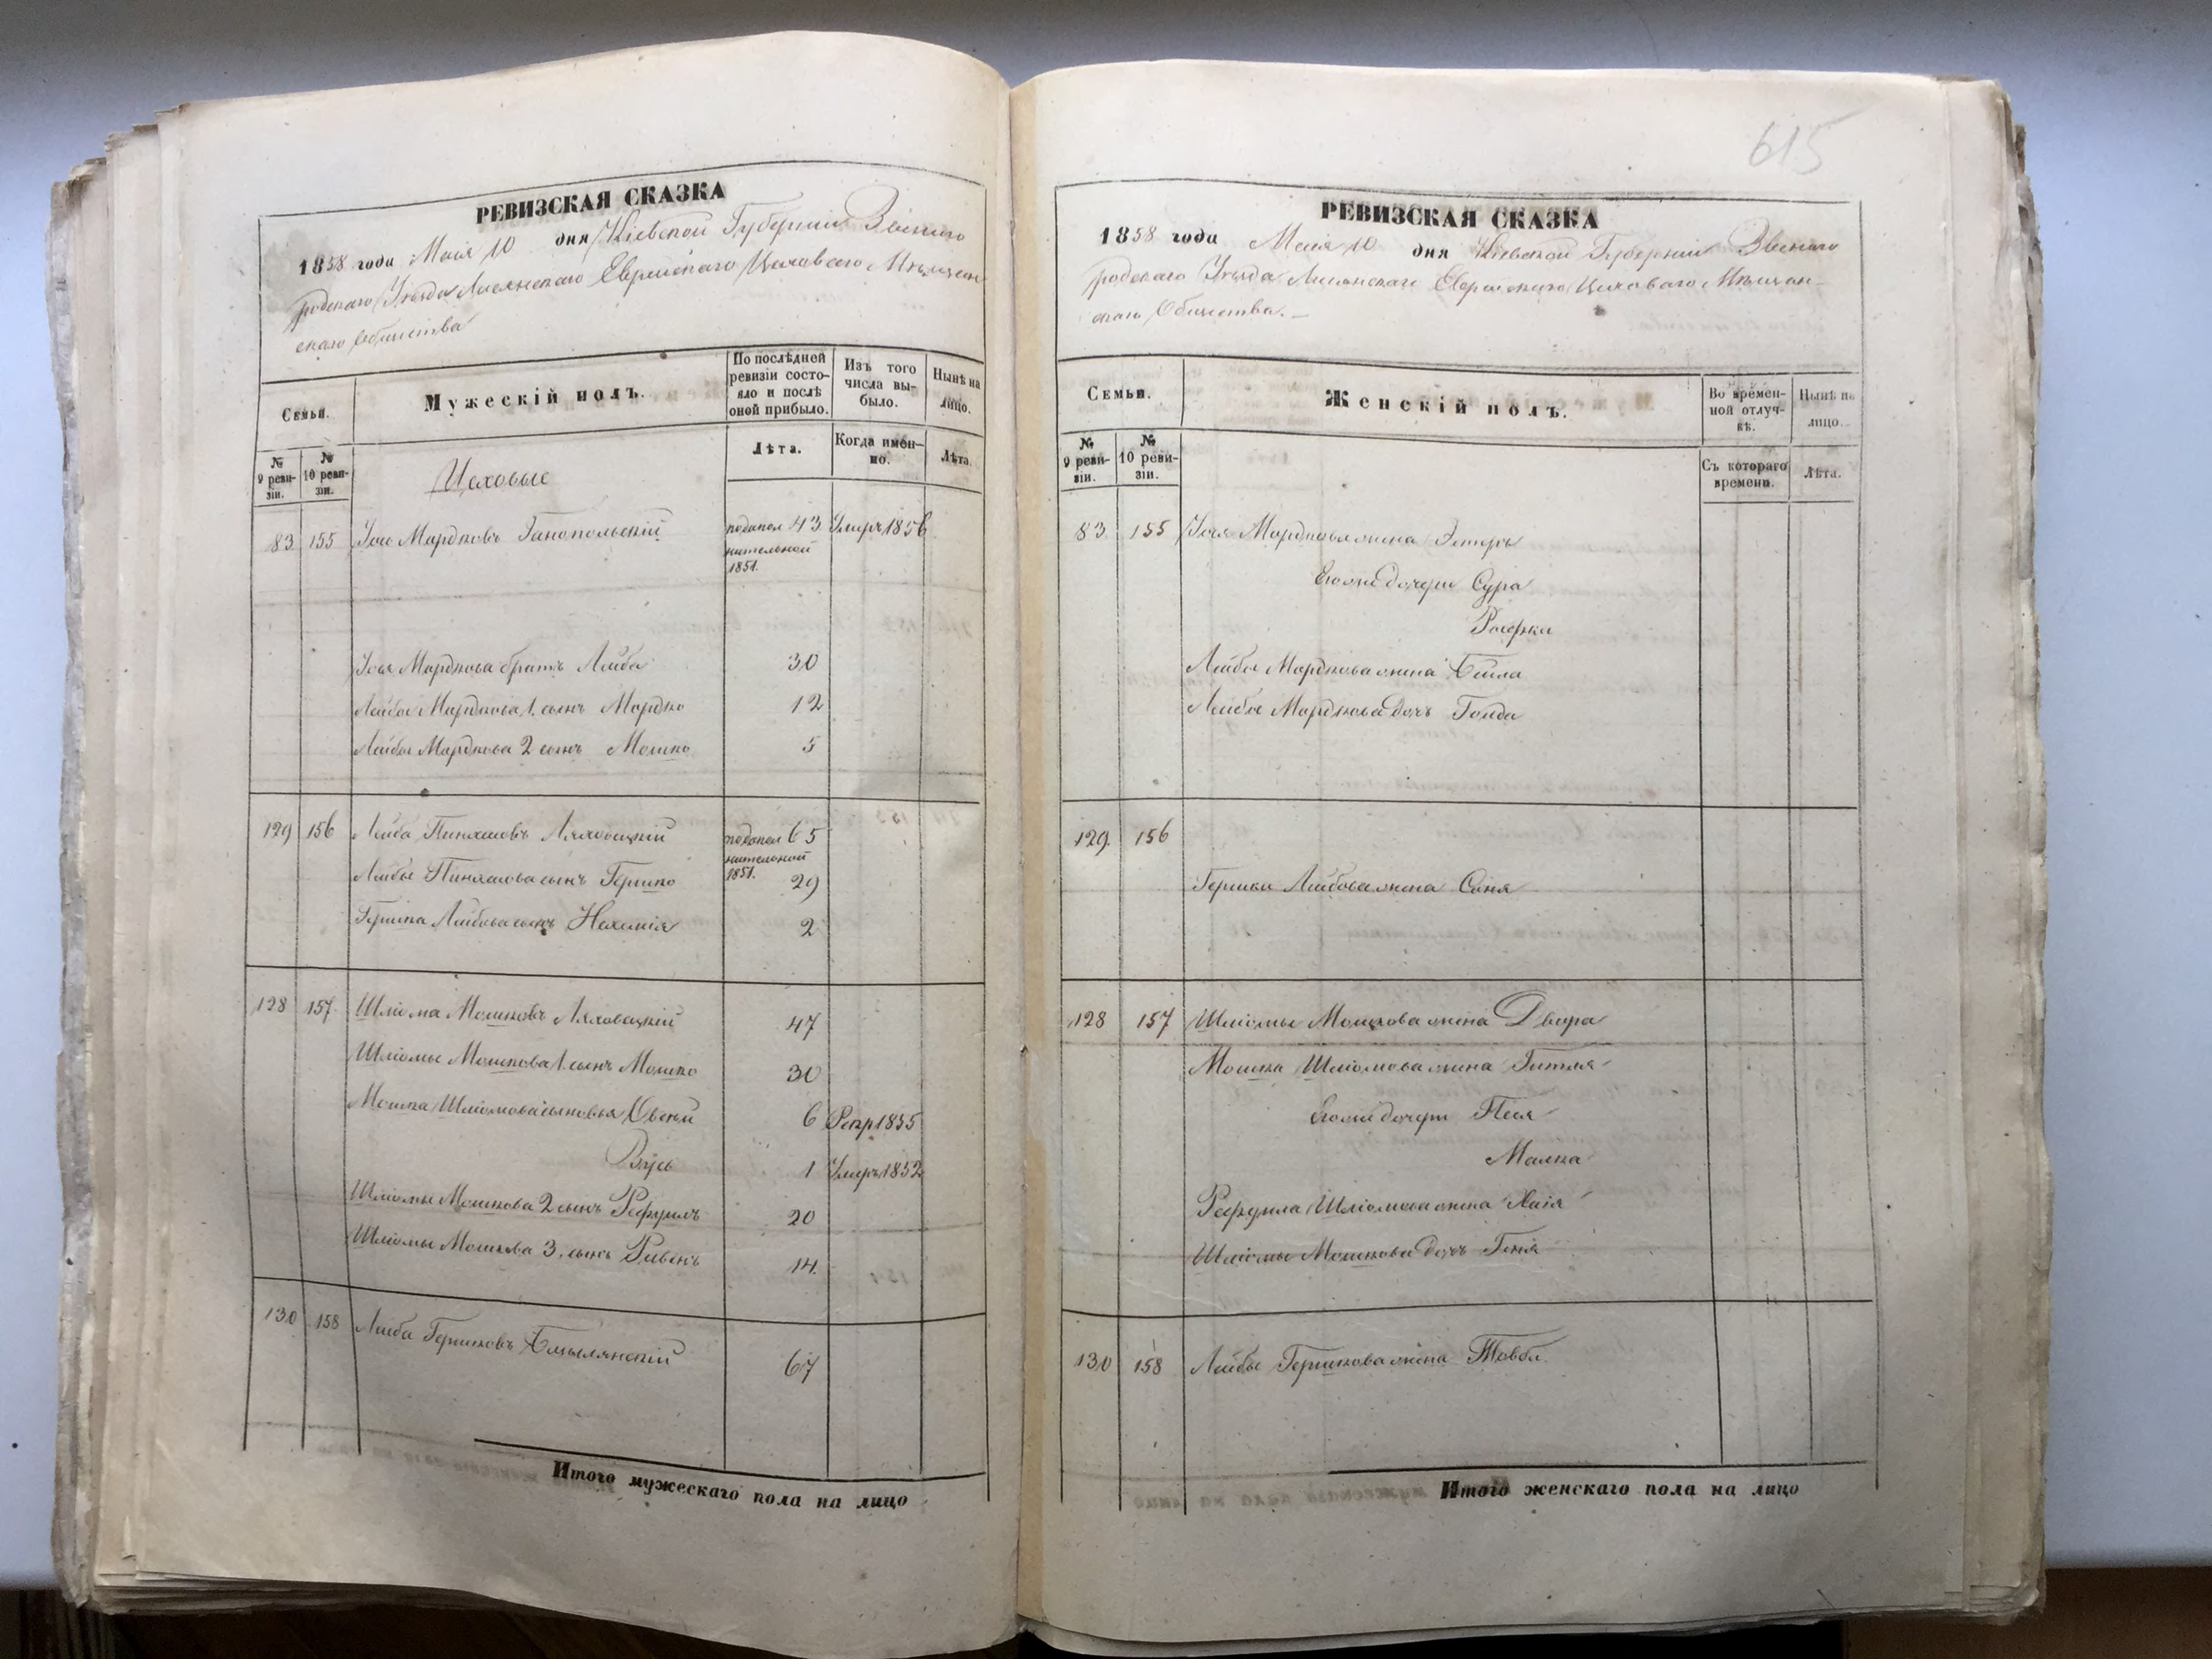 РЕВИЗСКАЯ СКАЗКА
1858 года Маія 10 дня Кіевской Губерніи Звениго
родскаго Уѣзда Лисянскаго Еврейскаго Цеховаго Мѣщан
скаго Общества
Семьи.
Мужескій полъ.
По послѣдней ревизіи состо-
яло и послѣ оной прибыло.
Изъ того числа вы-
было.
Нынѣ на лицо.
№ 9 реви-
зіи.
№ 10 реви-
зіи.
Лѣта.
Когда имен-
но.
Лѣта.
Цеховые
83 155 Іось Мордковъ Ганопольскій по допол 43 Умеръ 1856
нительной
1851.
Іося Мордкова братъ Лейба 30
Лейбы Мордкова 1. сынъ Мордко 12
Лейбы Мордкова 2 сынъ Мошко 5
129 156 Лейба Пинхасовъ Ляховецкій по допол 65
нительной
1851.
Лейбы Пинхасова сынъ Гершко 29
Гершка Лейбова сынъ Нехемія 2
128 157 Шліома Мошковъ Ляховецкій 47
Шліомы Мошкова 1. сынъ Мошко 30
Мошка Шліомова сыновья Овсѣй 6 Рекр 1855
1 Умеръ 1852
Шліомы Мошкова 2 сынъ Рефуилъ 20
Шліомы Мошкова 3. сынъ Ривенъ 14.
130 158 Лейба Гершковъ 67
Итого мужескаго пола на лицо
615
РЕВИЗСКАЯ СКАЗКА
1858 года Маія 10 дня Кіевской Губерніи Звениго
родскаго Уѣзда Лисянскаго Еврейскаго Цеховаго Мѣщан-
скаго Общества.
Семьи.
Женскій полъ.
Во времен-
ной отлуч-
кѣ.
Нынѣ на лицо.
№ 9 реви-
зіи.
№ 10 реви-
зіи.
Съ котораго времени.
Лѣта.
83. 155 Іося Мордкова жена Эстеръ
Его же дочери Сура
Рифка
Лейбы Мордкова жена Бейла
Лейбы Мордкова дочь Голда
129. 156
Гершка Лейбова жена Соня
128 157 Шліомы Мошкова жена Двора
Мошка Шліомова жена Гитля
Его же дочери Песя
Малка
Рефуила Шліомова жена Хаія
Шліомы Мошкова дочь Геня
130 158 Лейбы Гершкова жена Товба.
Итого женскаго пола на лицо